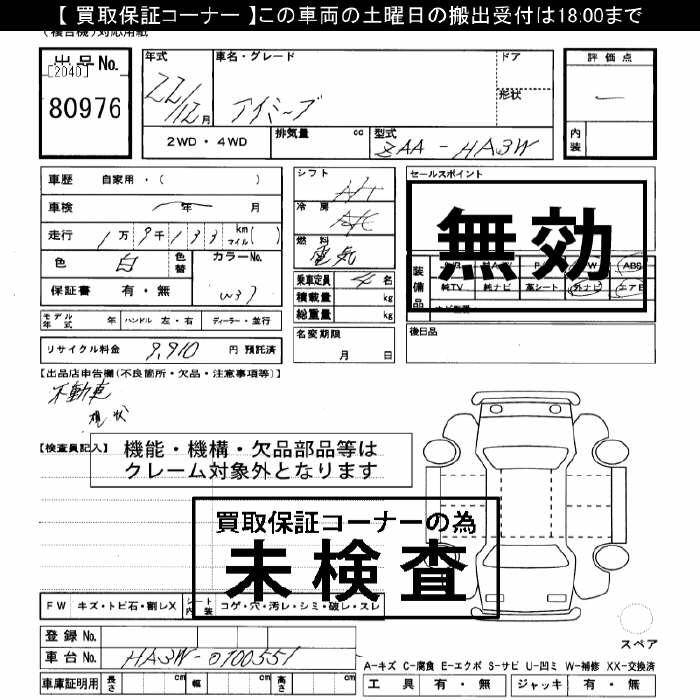 【 買取保証コーナー 】この車両の土曜日の搬出受付は18:00まで
(複合機)対応用紙
出品No. 年式 車名・グレード ドア 評価点
[2040]
80976 22/12月 アイミーブ 形状 ー
2WD・4WD 排気量 cc 型式 ZAA-HA3W 内装
車歴 自家用・( ) シフト A/T セールスポイント
車検 年 月 冷房 A/C
無効
走行 1万9千133 km マイル( ) 燃料 電気
色 白 色替 カラーNo. W37
装備品 ABS
乗車定員 4名
保証書 有・無 積載量 kg 純TV 純ナビ 革シート 外ナビ エアB
総重量 kg
モデル年式 年 ハンドル 左・右 ディーラー・並行
名変期限 月 日 後日品
リサイクル料金 9,910 円 預託済
【出品店申告欄(不良箇所・欠品・注意事項等)】
不動車
現状
【検査員記入】
機能・機構・欠品部品等は
クレーム対象外となります
買取保証コーナーの為
未検査
FW キズ・トビ石・割レX シート内装 コゲ・穴・汚レ・シミ・破レ・スレ
スペア
登録No.
車台No. HA3W-0100551
A-キズ C-腐食 E-エクボ S-サビ U-凹ミ W-補修 XX-交換済
車庫証明用 長さ cm 幅 cm 高さ cm 工具 有・無 ジャッキ 有・無